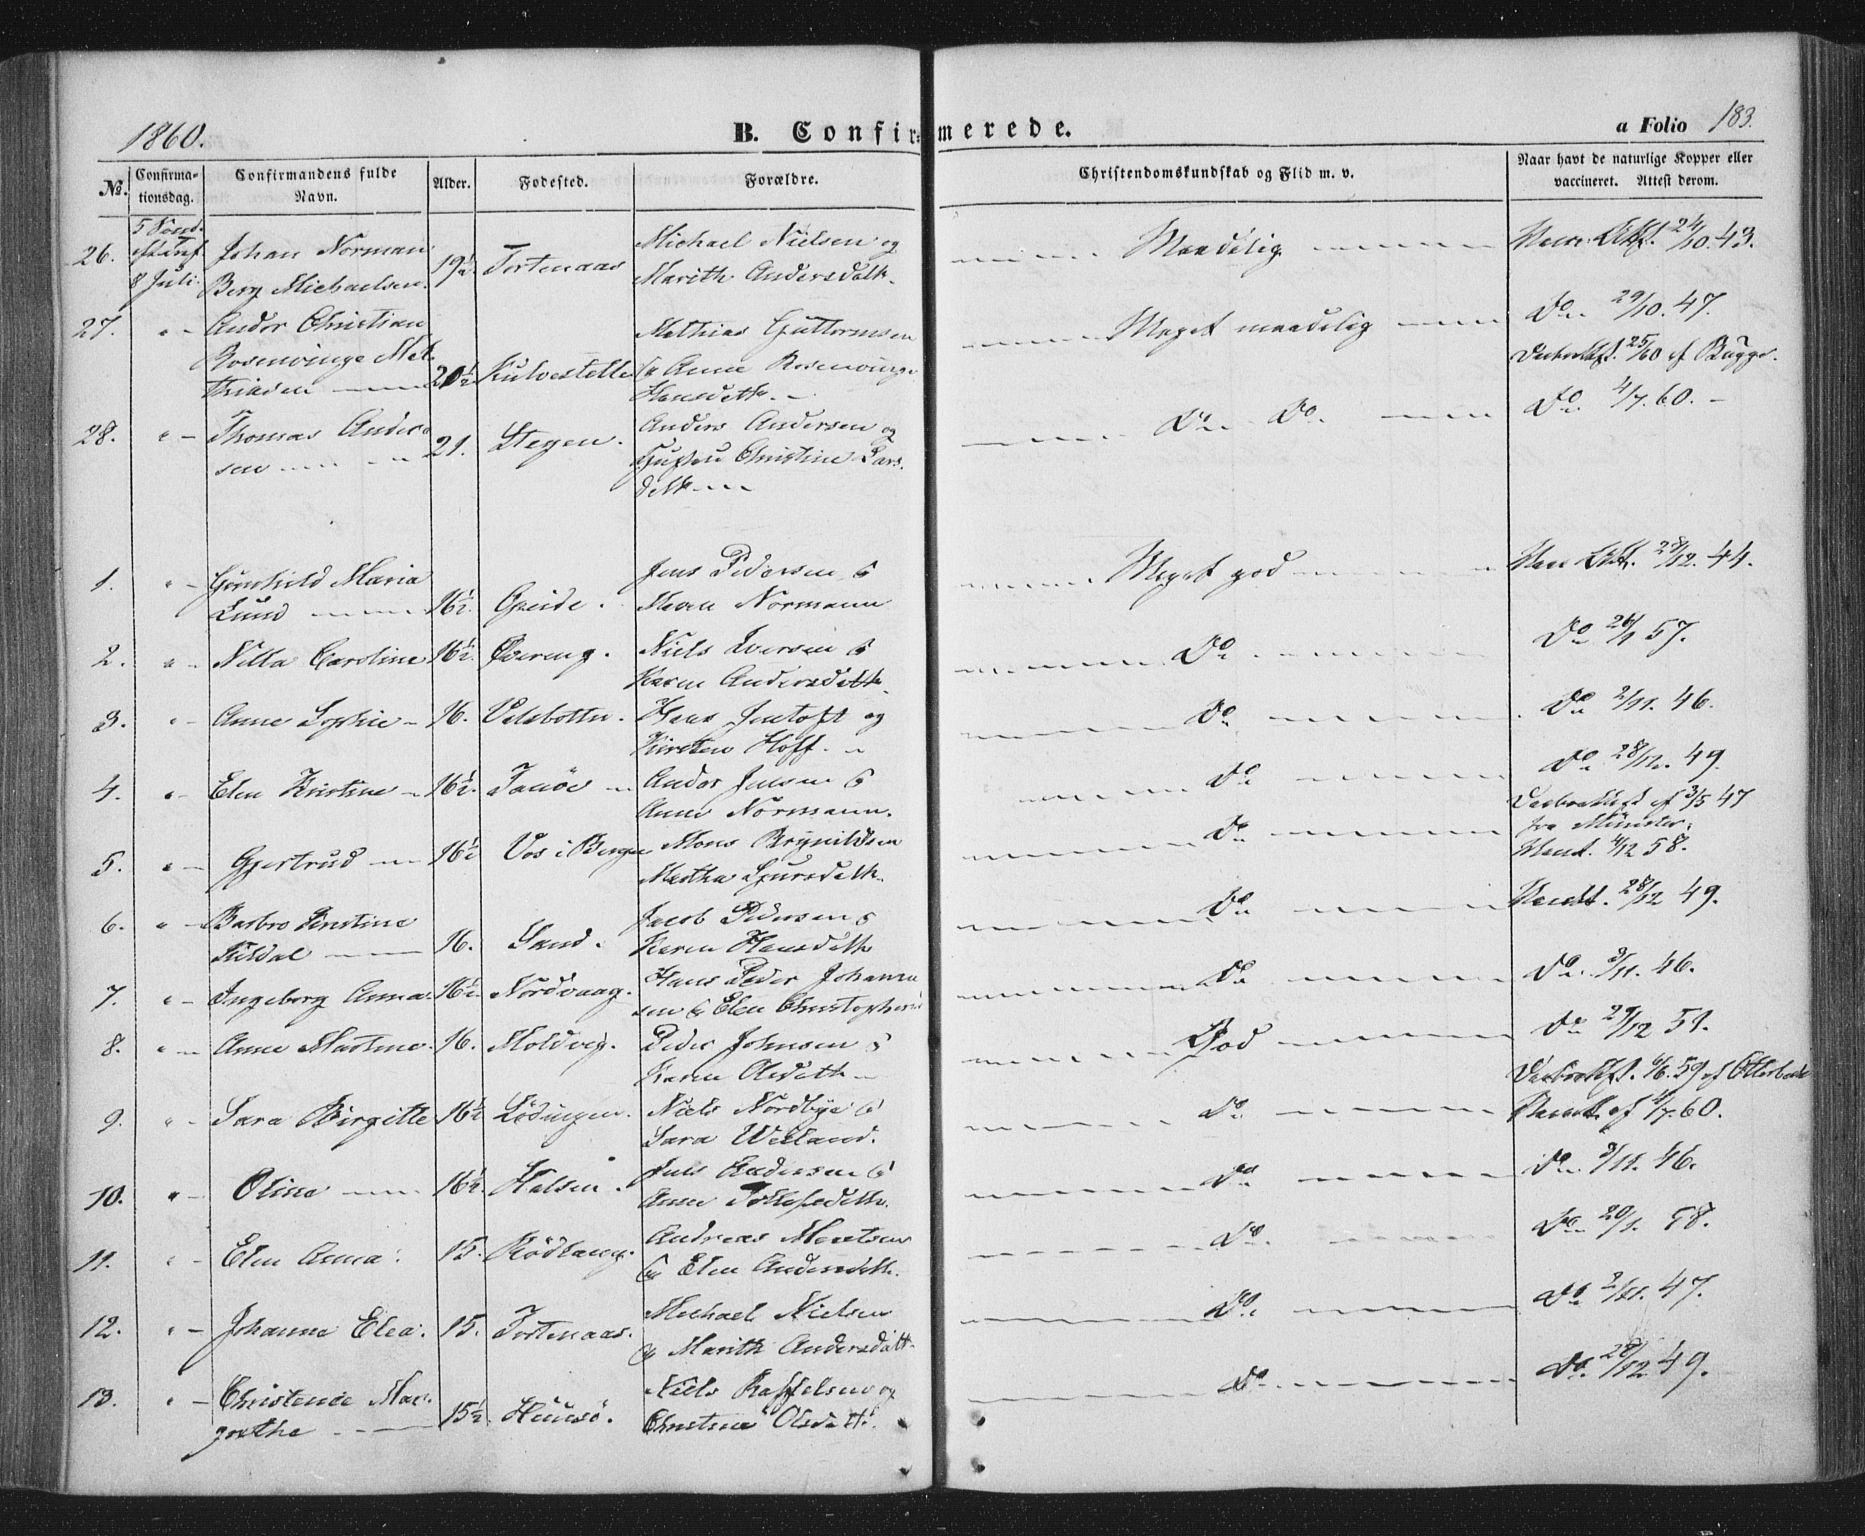 1860.
B. Confirmerede.
a Folio 183.
No.
Confirma-
tionsdag.
Confirmandens fulde
Navn.
Alder.
Fødested.
Forældre.
Christendomskundskab og Flid m. v.
Naar havt de naturlige Kopper eller
vaccineret. Attest derom.
26.
8 Juli.
Johan Norman
Berg Michaelsen.
19½
Tortenaas
Michael Nielsen og
Marith Andersdatt.
Maadelig
24/10. 43.
27.
"
Andor Christian
Rosenvinge Mat
thisen
20½
Mathias Guttormsen
& Anne Rosenvinge
Hansdatt.
Meget maadelig
Do. 29/10. 47.
25/60 af Bugge.
28.
"
Thomas Ander
sen
21.
Stegen.
Anders Andersen og
Christine Lars
datt
Do. Do.
Do. 4/7. 60.
1.
"
Gunhild Maria
Lund
16½.
Gjeide.
Jens Pedersen &
Maren Normann
Meget god
28/12. 44.
2.
"
Nilla Caroline
16½.
Qvereng.
Niels Iversen &
Karen Andersdatt.
Do.
Do. 26/1 57.
3.
"
Anne Sophie
16.
Velsbotten.
Hans Jentoft og
Kirsten Hoff.
Do.
Do. 2/11. 46.
4.
"
Elen Kristine
16½.
Tanöe
Andor Jensen &
Anne Normann.
Do.
Do. 28/12. 49.
5.
"
Gjertrud
16½
Vos i Bergen
Mons Brynildsen
Martha Sjursdatt.
Do
af 3/5 47
fra Münster.
4/12 58.
6.
"
Barbro Kirstine
16.
Sand.
Jacob Pedersen &
Karen Hansdatt
Do.
28/12 49.
7.
"
Ingeborg Anna.
16½.
Nordvaag.
Hans Peder Johann
sen & Elen Christophersd
Do
Do. 3/11. 46.
8.
"
Anne Martine.
16.
Moldvig.
Peder Johnsen &
Karen Olsdatt
God
Do 27/12 51.
9.
"
Sara Birgitte
16½
Lödingen.
Niels Nordbye &
Sara Weiland.
Do.
6/6. 59 af Otterbech
af 4/7. 60.
10.
"
Oline
16½.
Halsen.
Jens Andersen &
Anne Tollefsdatt.
Do.
Do. 3/11. 46.
11.
"
Elen Anna.
15.
Rödhaug.
Andreas Moretsen
& Elen Andersdatt.
Do.
Do. 20/1. 58.
12.
"
Johanna Elea.
15.
Tortenaas.
Michael Nielsen
& Marith Andersdatt.
Do.
Do 2/11. 47.
13.
"
Christence Mar
grethe
15½.
Niels Raffelsen og
Christina Olsdatt.
Do.
Do. 28/12 49.